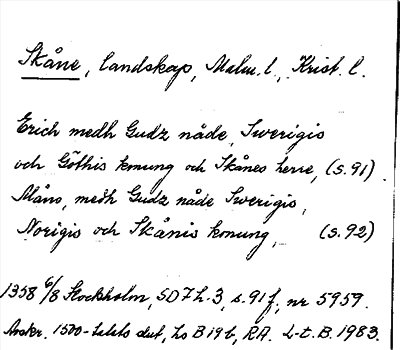 Skåne, landskap, Malm. l., Krist. l.
Erich medh Gudz nåde, Swerigis
och Göthis konung och Skånes herre, (s. 91)
Måns, medh Gudz nåde Swerigis,
Norigis och Skånis konung, (s. 92)
1358 6/8 Stockholm, SD 7 h. 3, s. 91 f, nr 5959.
Avskr. 1500-talets slut, hs B 196, RA. L-t. B. 1983.